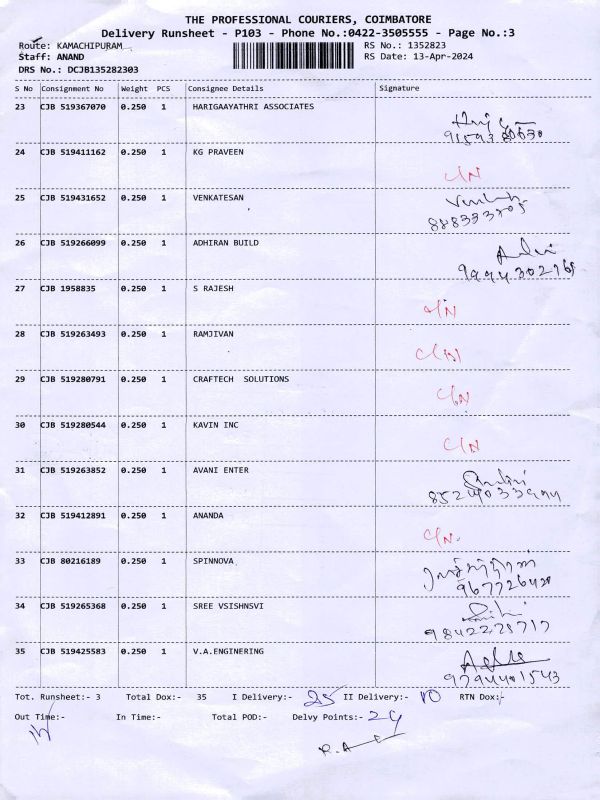 THE PROFESSIONAL COURIERS, COIMBATORE
Delivery Runsheet - P103 - Phone No.:0422-3505555 - Page No.:3
Route: KAMACHIPURAM RS No.: 1352823
Staff: ANAND RS Date: 13-Apr-2024
DRS No.: DCJB135282303
S No Consignment No Weight PCS Consignee Details Signature
23 CJB 519367070 0.250 1 HARIGAAYATHRI ASSOCIATES
24 CJB 519411162 0.250 1 KG PRAVEEN C/N
25 CJB 519431652 0.250 1 VENKATESAN
26 CJB 519266099 0.250 1 ADHIRAN BUILD
27 CJB 1958835 0.250 1 S RAJESH C/N
28 CJB 519263493 0.250 1 RAMJIVAN C/N
29 CJB 519280791 0.250 1 CRAFTECH SOLUTIONS C/N
30 CJB 519280544 0.250 1 KAVIN INC C/N
31 CJB 519263852 0.250 1 AVANI ENTER
32 CJB 519412891 0.250 1 ANANDA C/N.
33 CJB 80216189 0.250 1 SPINNOVA
34 CJB 519265368 0.250 1 SREE VSISHNSVI
35 CJB 519425583 0.250 1 V.A.ENGINERING
Tot. Runsheet:- 3 Total Dox:- 35 I Delivery:- 25 II Delivery:- 10 RTN Dox:-
Out Time:- In Time:- Total POD:- Delvy Points:- 24